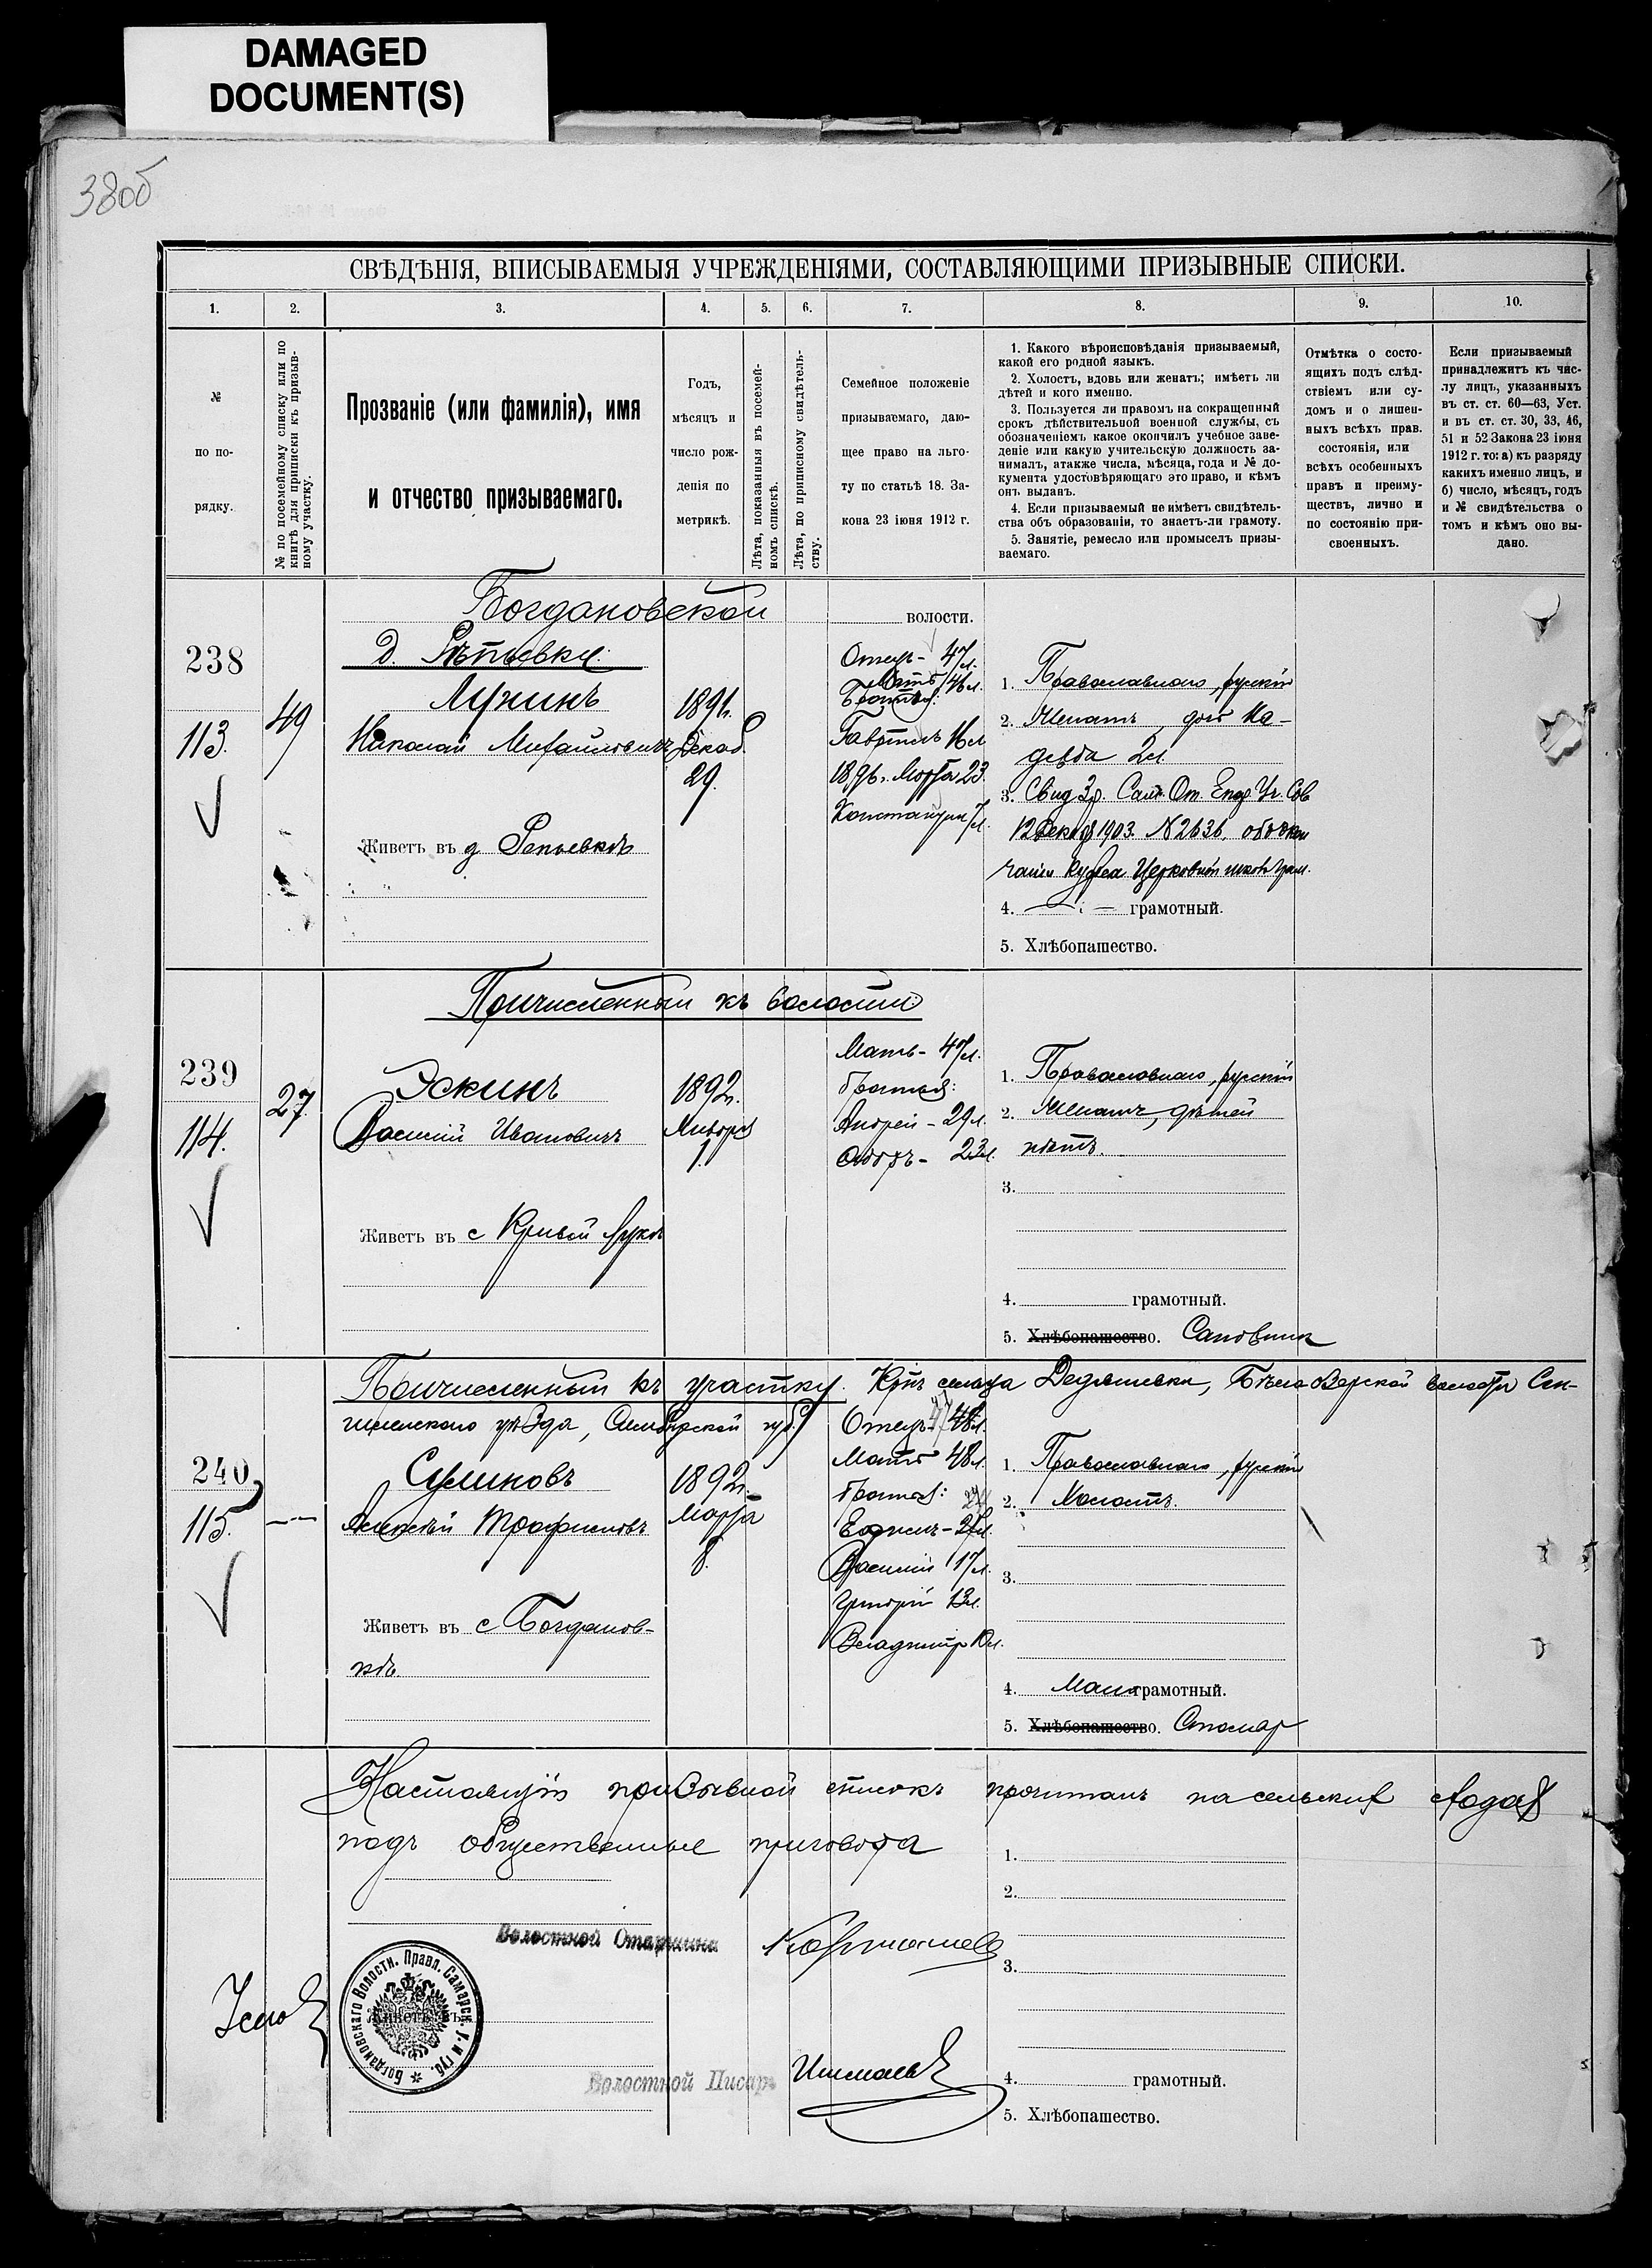 DAMAGED
DOCUMENT(S)
38об
СВѢДѢНІЯ, ВПИСЫВАЕМЫЯ УЧРЕЖДЕНІЯМИ, СОСТАВЛЯЮЩИМИ ПРИЗЫВНЫЕ СПИСКИ.
1. 2. 3. 4. 5. 6. 7. 8. 9. 10.
№
по по-
рядку.
№ по посемейному списку или по
книгѣ для приписки къ призыв-
ному участку.
Прозваніе (или фамилія), имя
и отчество призываемаго.
Годъ,
мѣсяцъ и
число рож-
денія по
метрикѣ.
Лѣта, показанныя въ посемей-
номъ спискѣ.
Лѣта, по приписному свидѣтель-
ству.
Семейное положеніе
призываемаго, даю-
щее право на льго-
ту по статьѣ 18. За-
кона 23 іюня 1912 г.
1. Какого вѣроисповѣданія призываемый,
какой его родной языкъ.
2. Холостъ, вдовъ или женатъ; имѣетъ ли
дѣтей и кого именно.
3. Пользуется ли правомъ на сокращенный
срокъ дѣйствительной военной службы, съ
обозначеніемъ какое окончилъ учебное заве-
деніе или какую учительскую должность за-
нималъ, атакже числа, мѣсяца, года и № до-
кумента удостовѣряющаго это право, и кѣмъ
онъ выданъ.
4. Если призываемый не имѣетъ свидѣтель-
ства объ образованіи, то знаетъ-ли грамоту.
5. Занятіе, ремесло или промыселъ призы-
ваемаго.
Отмѣтка о состо-
ящихъ подъ слѣд-
ствіемъ или су-
домъ и о лишен-
ныхъ всѣхъ прав.
состоянія, или
всѣхъ особенныхъ
правъ и преиму-
ществъ, лично и
по состоянію при-
своенныхъ.
Если призываемый
принадлежитъ къ чис-
лу лицъ, указанныхъ
въ ст. ст. 60—63, Уст.
и въ ст. ст. 30, 33, 46,
51 и 52 Закона 23 іюня
1912 г. то: а) къ разряду
какихъ именно лицъ, и
б) число, мѣсяцъ, годъ
и № свидѣтельства о
томъ и кѣмъ оно вы-
дано.
Богдановской волости.
д. Рѣпьевки.
238
113.
49
Лунинъ
Николай Михайловичъ
1891г.
Декаб.
29.
Отецъ - 47л.
Мать 46л.
Братья:
Гавріилъ 16л
1896г. Марта 23.
Константинъ 7л.
1. Православнаго, русскій
2. Женатъ, дочь На-
дежда 2л.
3. Свид Зр. Сам. От. Епар. Уч. Сов
12 Декаб 1903. № 2636. объ окон
чаніи курса Церковной школы грам.
4. — : — грамотный.
5. Хлѣбопашество.
Живетъ въ д Репьевкѣ
Причисленный къ волости:
239
114.
27
Эскинъ
Василій Ивановичъ
1892г.
Января
1.
Мать - 47л.
братья:
Андрей - 29л.
- 23л.
1. Православнаго, русскій
2. Женатъ, дѣтей
нѣтъ.
3.
Живетъ въ с Кривой Лукѣ
4. грамотный.
5. Хлѣбопашество.
Причисленный къ участку. Крѣс сельца Бѣлоозерской волости Сен-
гилеевскаго уѣзда, Симбирской губ.
240
115.
Сулиновъ
Алексѣй Трофимовъ
1892г.
Марта
8.
Отецъ 48л.
Мать 48л.
братья:
Василій 17л.
Григорій 13л.
Владиміръ 10л.
1. Православнаго, русскій
2. Холостъ.
3.
Живетъ въ с Богданов-
кѣ.
4. Малограмотный.
5. Хлѣбопашество. Столяр
Настоящій призывной списокъ прочитанъ на сельскихъ сходахъ
подъ общественные приговора
1.
2.
3.
Волостной Старшина
Богдановскаго Волостн. Правл. Самарск. у. и губ.
Живетъ въ
Волостной Писарь
4. грамотный.
5. Хлѣбопашество.